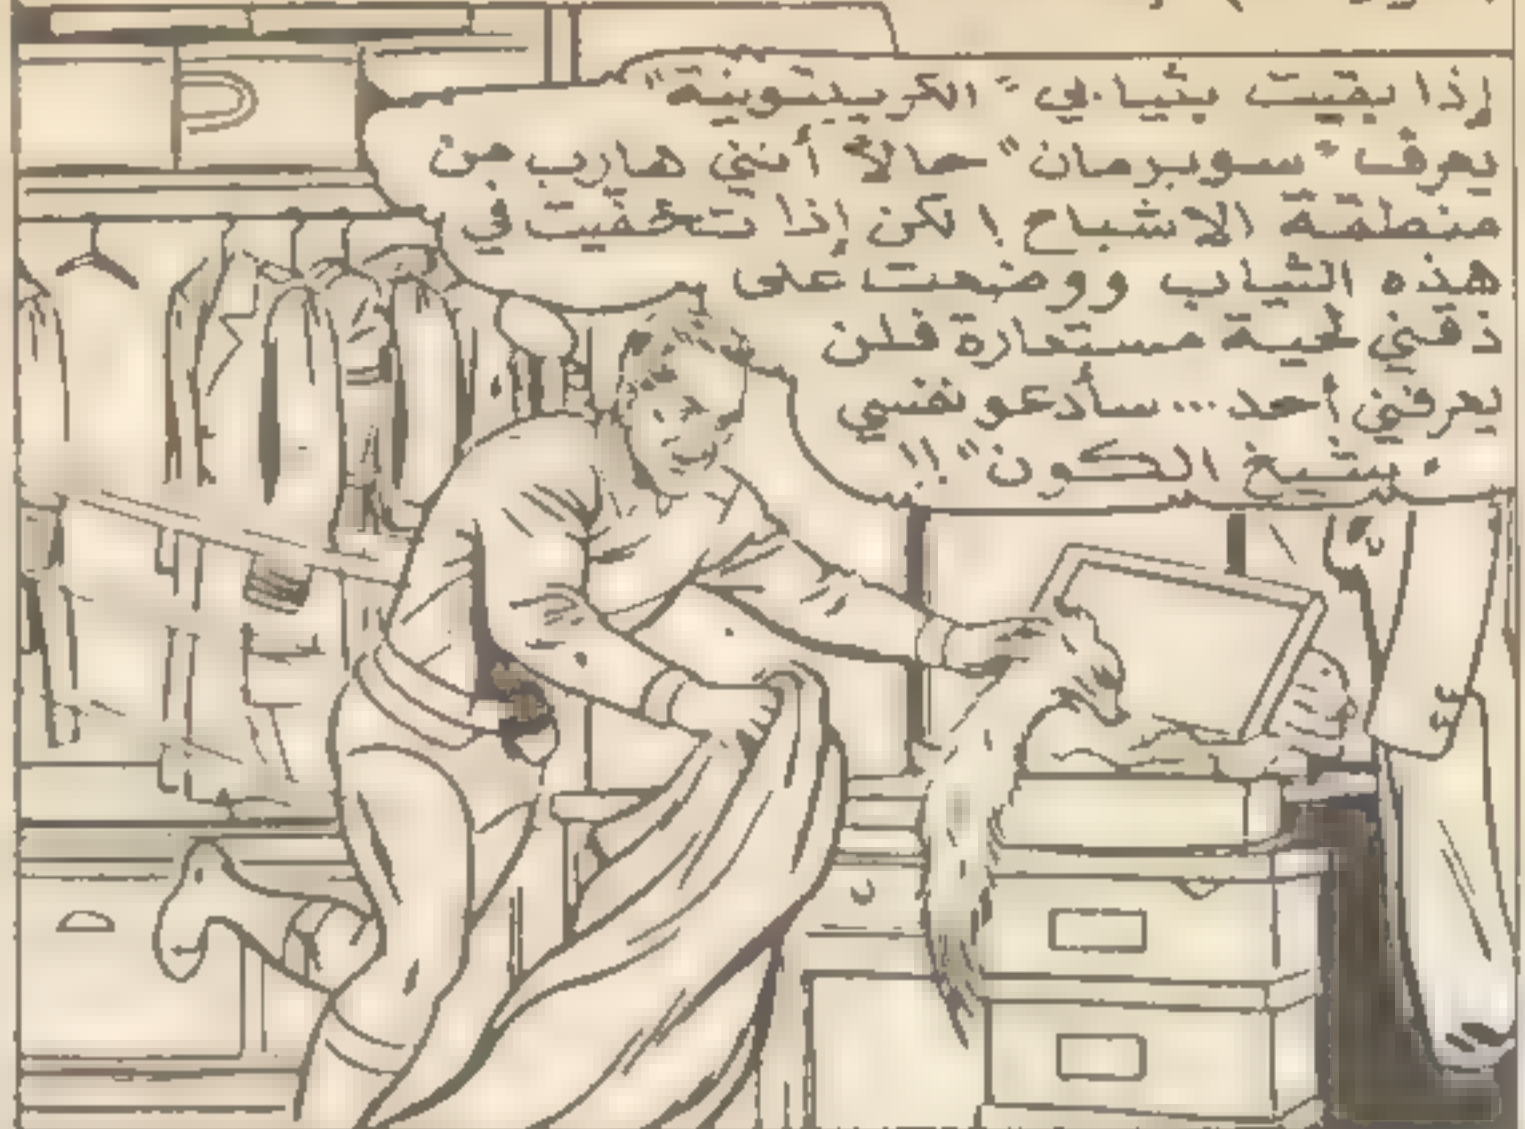 إذا بقيت بثيابي "الكريبتونية"
يعرف "سوبرمان" حالاً أنني هارب من
منطقة الاشباح ! لكن إذا تخفيت في
هذه الثياب ووضعت على
ذقني لحية مستعارة فلن
يعرفني أحد... سأدعو نفسي
"بشيخ الكون"!!